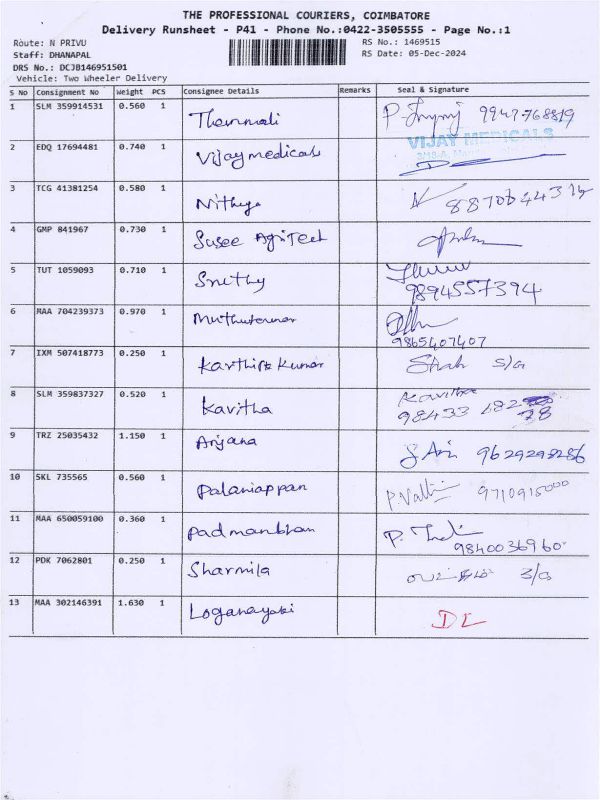 THE PROFESSIONAL COURIERS, COIMBATORE
Delivery Runsheet - P41 - Phone No.:0422-3505555 - Page No.:1
Route: N PRIVU RS No.: 1469515
Staff: DHANAPAL RS Date: 05-Dec-2024
DRS No.: DCJB146951501
Vehicle: Two Wheeler Delivery
S No Consignment No Weight PCS Consignee Details Remarks Seal & Signature
1 SLM 359914531 0.560 1
2 EDQ 17694481 0.740 1 Vijay medicals VIJAY MEDICALS
3 TCG 41381254 0.580 1 Nithya
4 GMP 841967 0.730 1 Susee AgiTech
5 TUT 1059093 0.710 1 Smithy
9894557394
6 MAA 704239373 0.970 1
9865407407
7 IXM 507418773 0.250 1 Karthik Kumar s/a
8 SLM 359837327 0.520 1 Kavitha Kavitha
98433
9 TRZ 25035432 1.150 1 Anjana 9629292286
10 SKL 735565 0.560 1 Palaniappan 9710915000
11 MAA 650059100 0.360 1 Padmanbhan
9840036960
12 PDK 7062801 0.250 1 Sharmila
13 MAA 302146391 1.630 1 Loganayaki DL